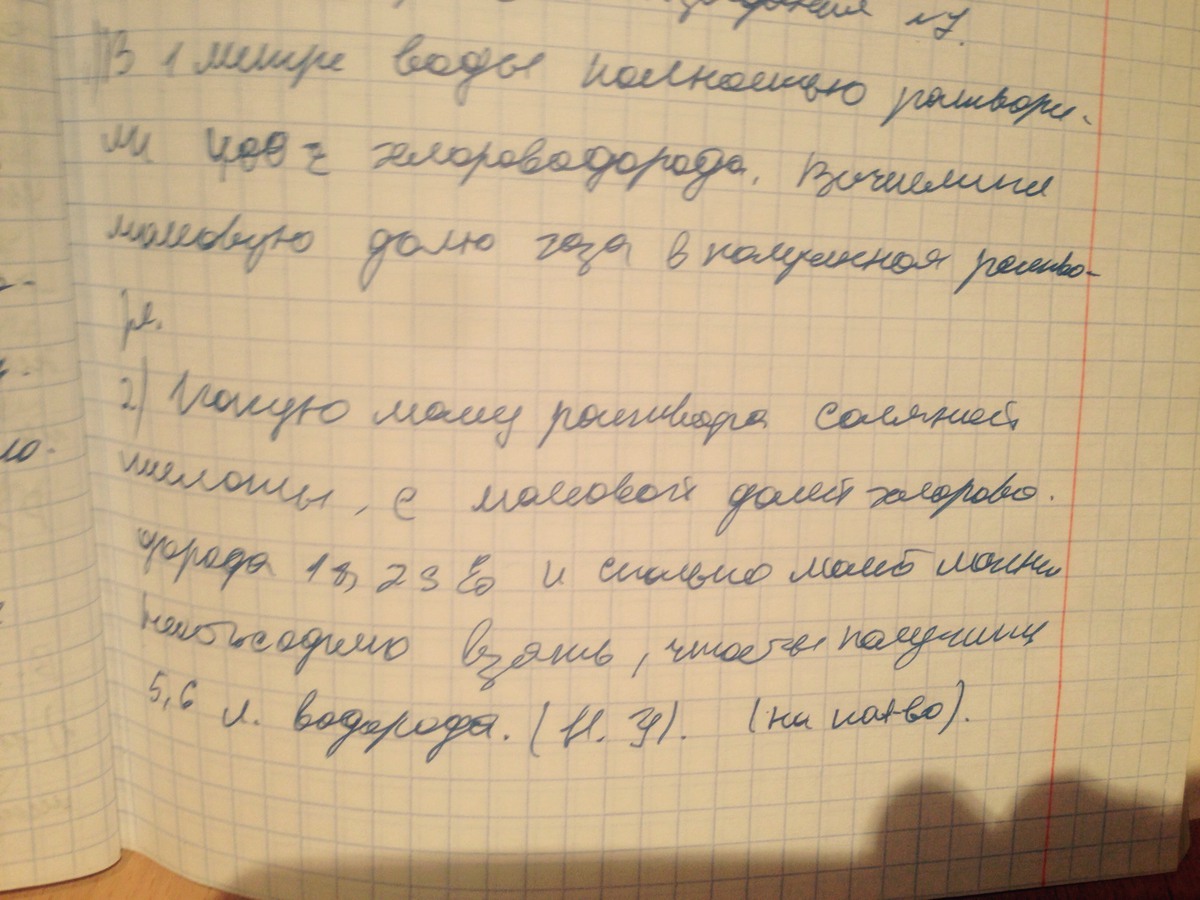 №7.
1) В 1 литре воды полностью раствори-
ли 400 г хлороводорода. Вычислите
массовую долю газа в полученном раство-
ре.
2) Какую массу раствора соляной
кислоты, с массовой долей хлорово-
дорода 18,25 % и сколько
необходимо взять, чтобы получить
5,6 л. водорода. (Н. У). (на кол-во).